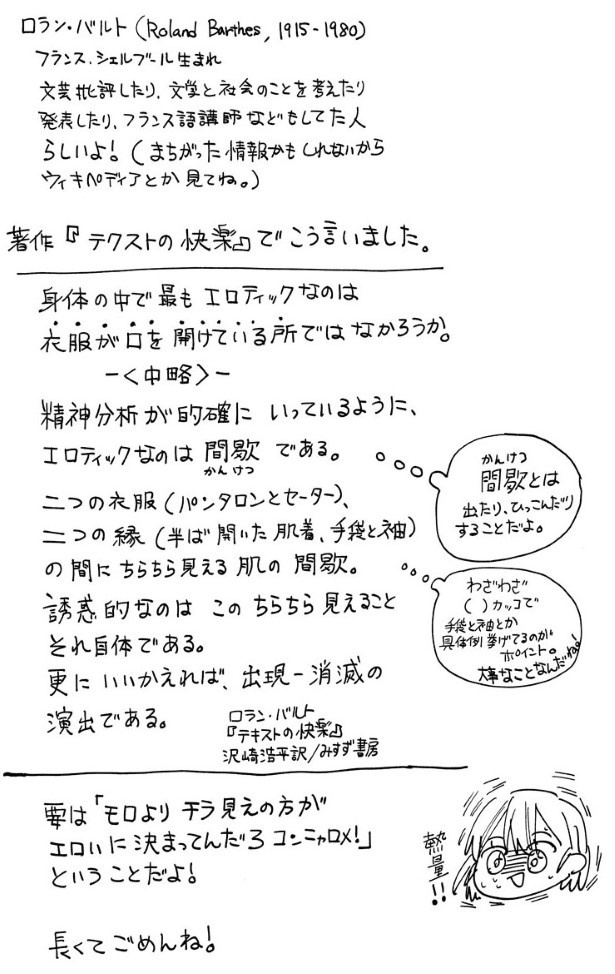 ロラン・バルト (Roland Barthes, 1915-1980)
フランス.シェルブール生まれ
文芸批評したり、文学と社会のことを考えたり
発表したり、フランス語講師などもしてた人
らしいよ! (まちがった情報かもしれないから
ウィキペディアとか見てね。)
著作『テクストの快楽』でこう言いました。
身体の中で最もエロティックなのは
衣服が口を開けている所ではなかろうか。
ー<中略>ー
精神分析が的確にいっているように、
エロティックなのは間歇である。
かんけつ
かんけつ
間歇とは
出たり、ひっこんだり
することだよ。
二つの衣服(パンタロンとセーター)、
二つの縁(半ば開いた肌着、手袋と袖)
の間にちらちら見える肌の間歇。
わざわざ
( )カッコで
手袋と袖とか
具体例挙げてるのが
ポイント。
大事なことなんだね!
誘惑的なのはこのちらちら見えること
それ自体である。
更にいいかえれば、出現ー消滅の
演出である。
ロラン・バルト
『テキストの快楽』
沢崎浩平訳/みすず書房
要は「モロよりチラ見えの方が
エロいに決まってんだろコンニャロメ!」
ということだよ!
熱量!!
長くてごめんね!